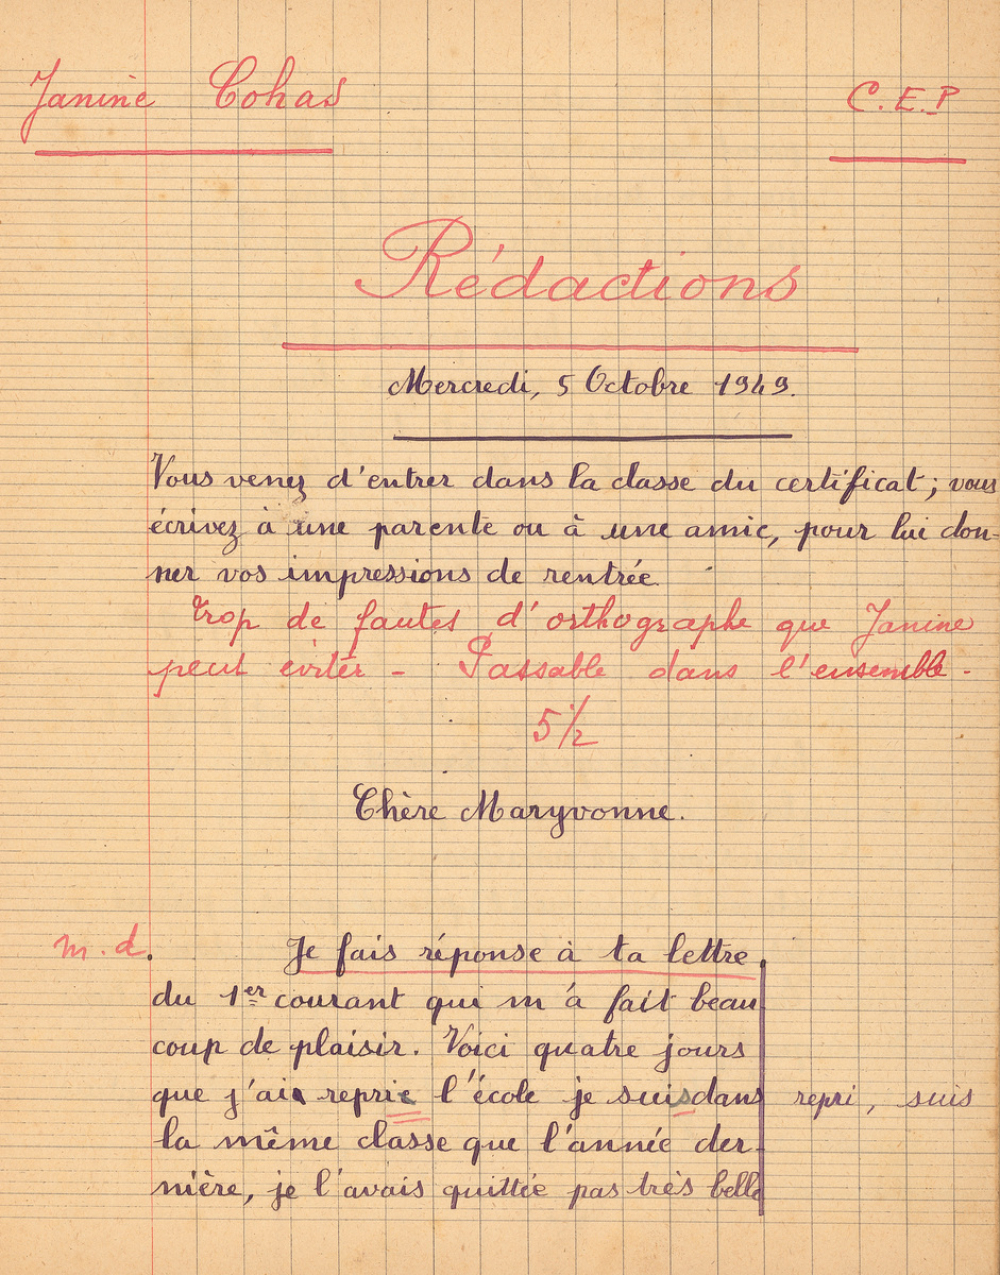 Janine Cohas C.E.P
Rédactions
Mercredi, 5 Octobre 1949.
Vous venez d'entrer dans la classe du certificat ; vous
écrivez à une parente ou à une amie, pour lui don-
ner vos impressions de rentrée.
Trop de fautes d'orthographe que Janine
peut éviter - Passable dans l'ensemble -
5 1/2
Chère Maryvonne.
m. d. Je fais réponse à ta lettre
du 1er courant qui m'a fait beau
coup de plaisir. Voici quatre jours
que j'ai reprie l'école je suis dans repri, suis
la même classe que l'année der-
nière, je l'avais quittée pas très belle